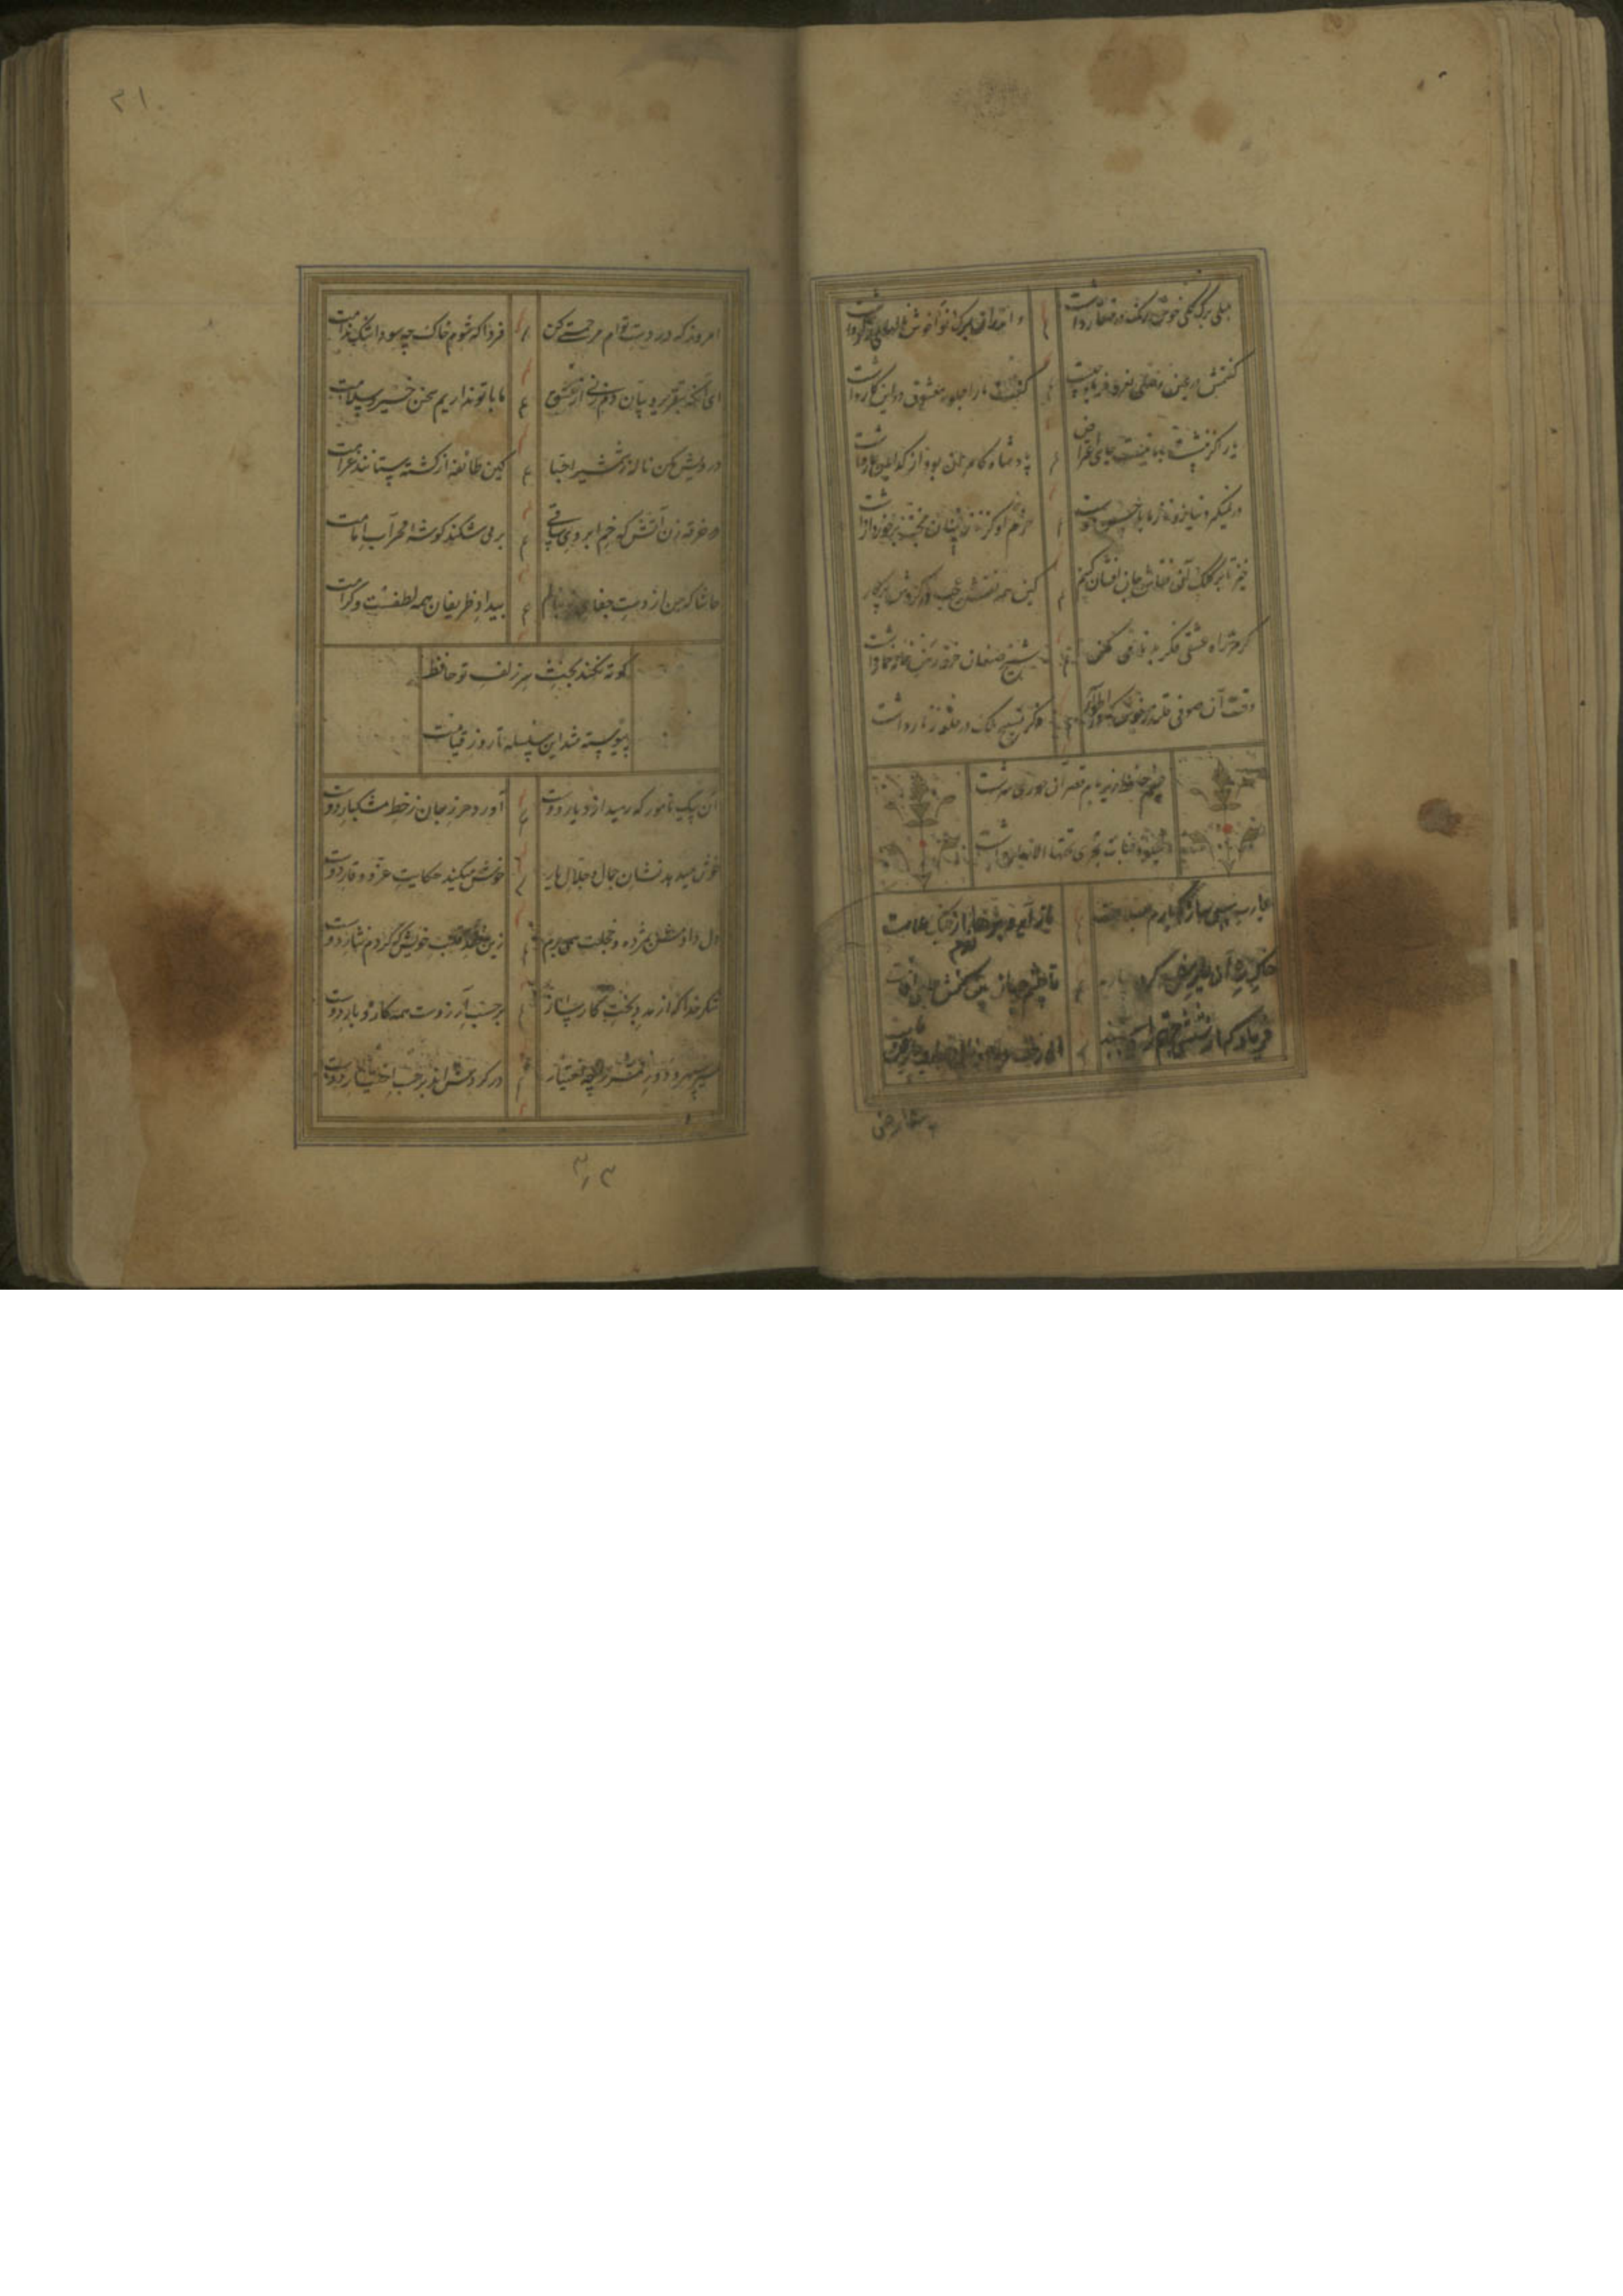 بلبلی برگ گلی خوش رنگ در منقار داشت
و اندر آن برگ و نوا خوش نالهای زار داشت
گفتمش در عین وصل این ناله و فریاد چیست
گفت ما را جلوه معشوق در این کار داشت
یار اگر ننشست با ما نیست جای اعتراض
پادشاه کامران بود از گدایان عار داشت
در نمیگیرد نیاز و ناز ما با حسن دوست
خرم آن کز نازنینان بخت برخوردار داشت
خیز تا بر کلک آن نقاش جان افشان کنیم
کین همه نقش عجب در گردش پرگار داشت
گر مرید راه عشقی فکر بدنامی مکن
شیخ صنعان خرقه رهن خانه خمار داشت
وقت آن صوفی قلندر خوش که در اطوار سیر
ذکر تسبیح ملک در حلقه زنار داشت
چشم حافظ زیر بام قصر آن حوری سرشت
شیوه جنات تجری تحتها الانهار داشت
یا رب سببی ساز که یارم بسلامت
باز آید و برهاندم از چنگ ملامت
خاک ره آن یار سفر کرده بیارید
تا چشم جهان بین کنمش جای اقامت
فریاد که از شش جهتم راه ببستند
آن خال و خط و زلف و رخ و عارض و قامت
۲۱
امروز که در دست توام مرحمتی کن
فردا که شوم خاک چه سود اشک ندامت
ای آنکه بتقریر و بیان دم زنی از عشق
ما با تو نداریم سخن خیر و سلامت
درویش مکن ناله ز شمشیر احبا
کین طائفه از کشته ستانند غرامت
در خرقه زن آتش که خم ابروی ساقی
بر می شکند گوشه محراب امامت
حاشا که من از دست جفای تو بنالم
بیداد ظریفان همه لطفست و کرامت
کوته نکند بحث سر زلف تو حافظ
پیوسته شد این سلسله تا روز قیامت
آن پیک نامور که رسید از دیار دوست
آورد حرز جان ز خط مشکبار دوست
خوش میدهد نشان جمال و جلال یار
خوش میکند حکایت عز و وقار دوست
دل دادمش بمژده و خجلت همی برم
زین نقد قلب خویش که کردم نثار دوست
شکر خدا که از مدد بخت کارساز
بر حسب آرزوست همه کار و بار دوست
سیر سپهر و دور قمر را چه اختیار
در گردش اند بر حسب اختیار دوست